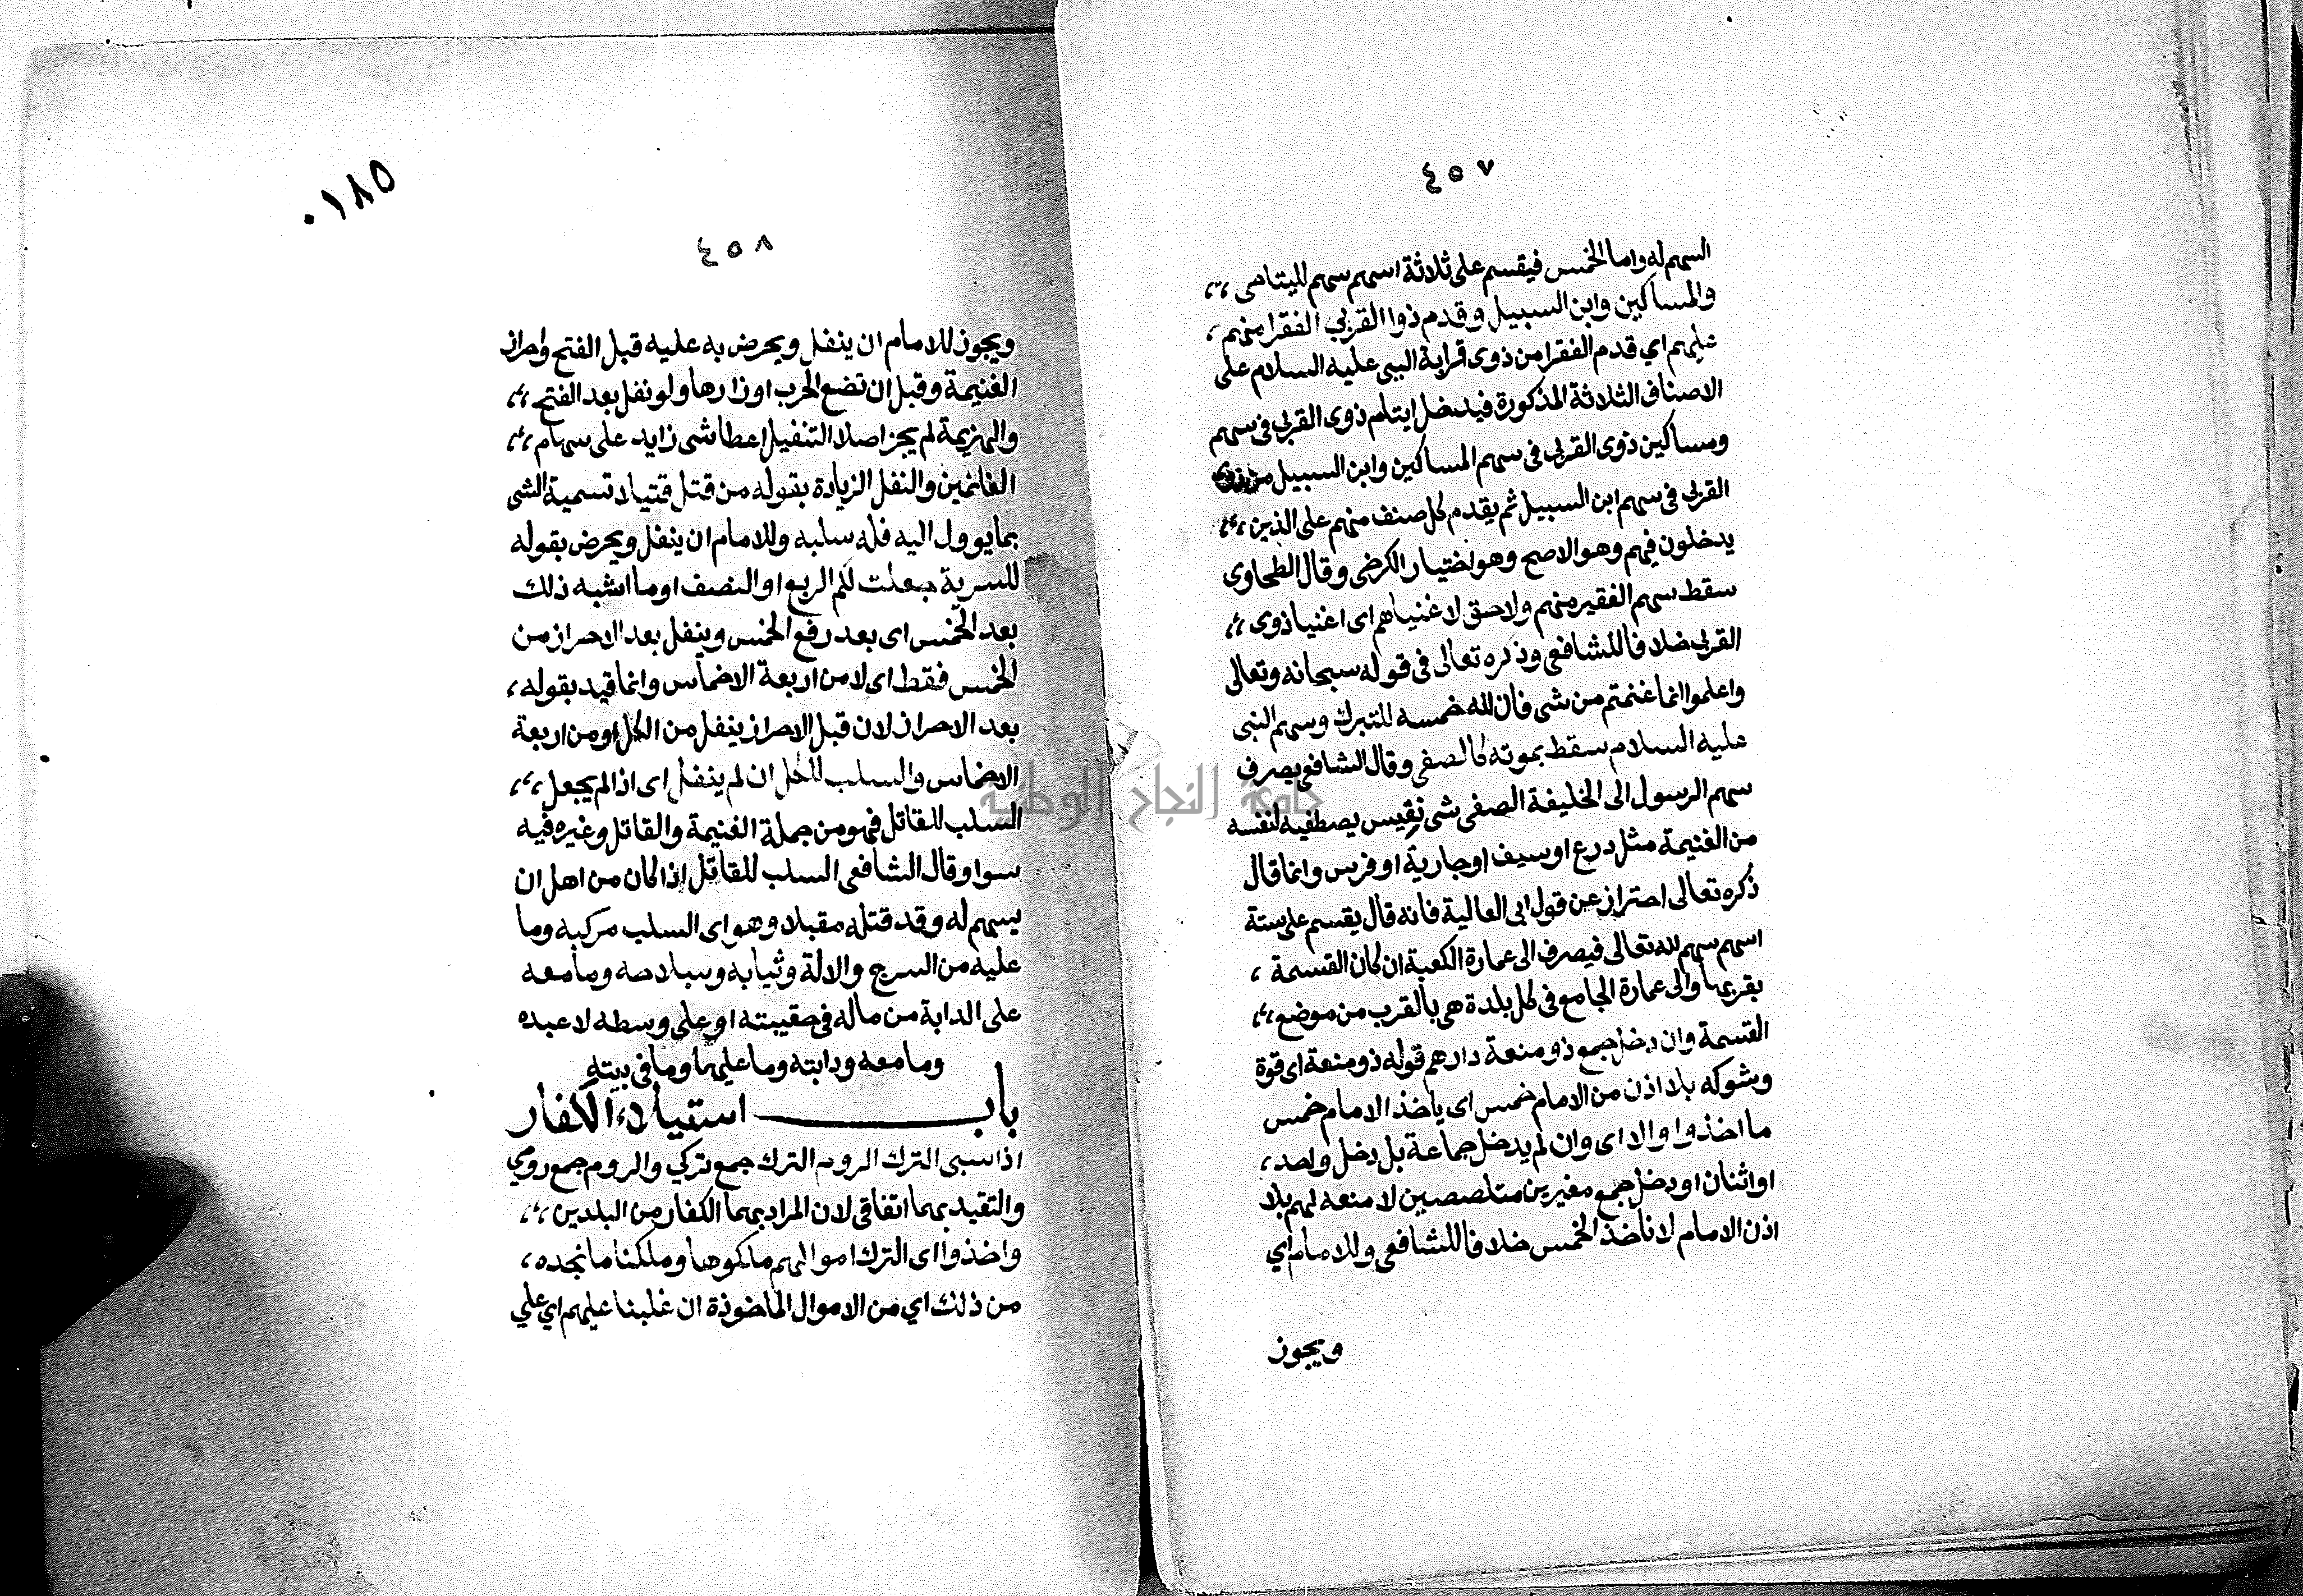 ٤٥٧
السهم له واما الخمس فيقسم على ثلاثة اسهم سهم لليتامى
والمساكين وابن السبيل وقدم ذوا القربى الفقرا منهم
عليهم اي قدم الفقرا من ذوى قرابة النبى عليه السلام على
الاصناف الثلاثة المذكورة فيدخل ايتام ذوى القربى فى سهم
ومساكين ذوى القربى فى سهم المساكين وابن السبيل من ذوى
القربى فى سهم ابن السبيل ثم يقدم كل صنف منهم على الذين
يدخلون فيهم وهو الاصح وهو اختيار الكرخى وقال الطحاوى
سقط سهم الفقير منهم ولا حق لاغنياهم اى اغنيا ذوى
القربى خلافا للشافعى وذكره تعالى فى قوله سبحانه وتعالى
واعلموا انما غنمتم من شى فان لله خمسه للتبرك وسهم النبى
عليه السلام سقط بموته كالصفى وقال الشافعى يصرف
سهم الرسول الى الخليفة الصفى شى نفيس يصطفيه لنفسه
من الغنيمة مثل درع او سيف او جارية او فرس وانما قال
ذكره تعالى احتراز عن قول ابى العالية فانه قال يقسم على ستة
اسهم سهم لله تعالى فيصرف الى عمارة الكعبة ان كان القسمة
بقربها والى عمارة الجامع فى كل بلدة هى بالقرب من موضع
القسمة وان دخل جمع ذو منعة دارهم قوله ذو منعة اى قوة
وشوكه بلا اذن من الامام خمس اى ياخذ الامام خمس
ما اخذوا والا اى وان لم يدخل جماعة بل دخل واحد
او اثنان او دخل جمع مغيرين متلصصين لا منعه لهم بلا
اذن الامام لا ناخذ الخمس خلافا للشافعى وللامام اي
ويجوز
٠١٨٥
٤٥٨
ويجوز للامام ان ينفل ويحرض به عليه قبل الفتح واحراز
الغنيمة وقبل ان تضع الحرب اوزارها ولو نفل بعد الفتح
والهزيمة لم يجز اصلا التنفيل اعطا شى زايد على سهام
الغانمين والنفل الزيادة بقوله من قتل قتيلا تسمية الشى
بما يوول اليه فله سلبه وللامام ان ينفل ويحرض بقوله
للسرية جعلت لكم الربع او النصف او ما اشبه ذلك
بعد الخمس اى بعد رفع الخمس وينفل بعد الاحراز من
الخمس فقط اى لا من اربعة الاخماس وانما قيد بقوله
بعد الاحراز لان قبل الاحراز ينفل من الكل او من اربعة
الاخماس والسلب للكل ان لم ينفل اى اذا لم يجعل
السلب للقاتل فهو من جملة الغنيمة والقاتل وغيره فيه
سوا وقال الشافعى السلب للقاتل اذا كان من اهل ان
يسهم له وقد قتله مقبلا وهو اى السلب مركبه وما
عليه من السرج والالة وثيابه وسلاحه وما معه
على الدابة من ماله فى حقيبته او على وسطه لا عبده
وما معه ودابته وما عليها وما فى بيته
باب استيلاء الكفار
اذا سبى الترك الروم الترك جمع تركي والروم جمع رومي
والتقيد بهما اتفاقى لان المراد بهما الكفار من البلدين
واخذوا اى الترك اموالهم ملكوها وملكنا ما نجده
من ذلك اي من الاموال الماخوذة ان غلبنا عليهم اي علي
جامعة النجاح الوطنية